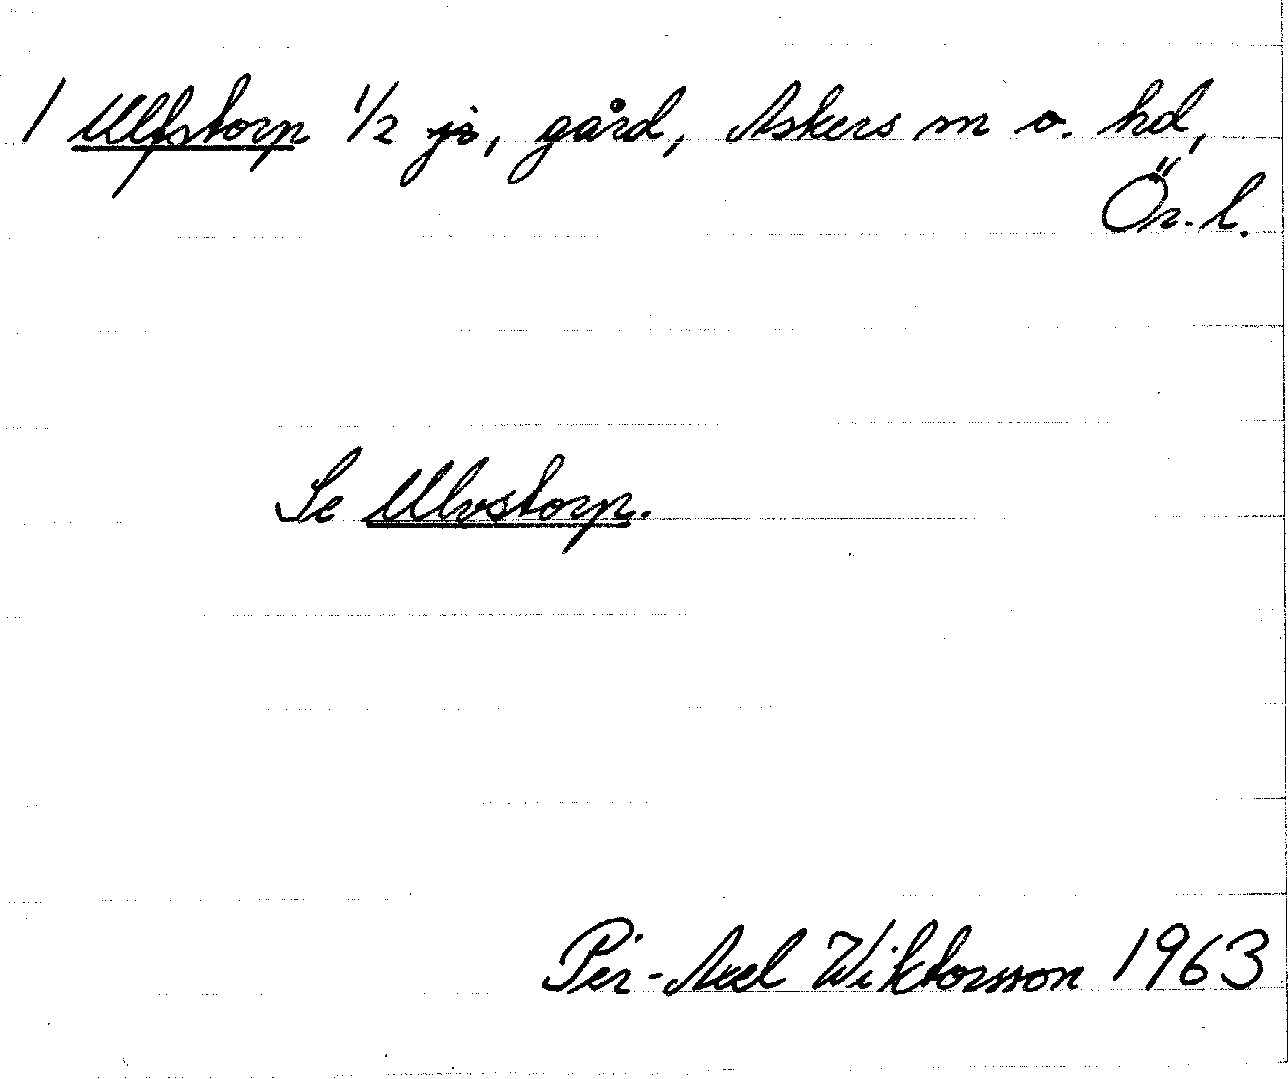 1 Ulfstorp 1/2 js, gård, Askers sn o. hd,
Ör. l.
Se Ulvstorp.
Per-Axel Wiktorsson 1963